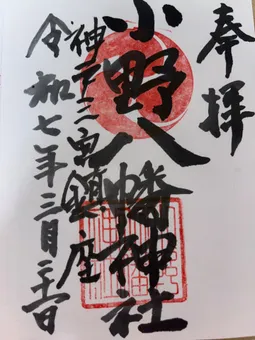 奉拝
小野八幡神社
神戸三宮鎮座
令和七年三月二十一日